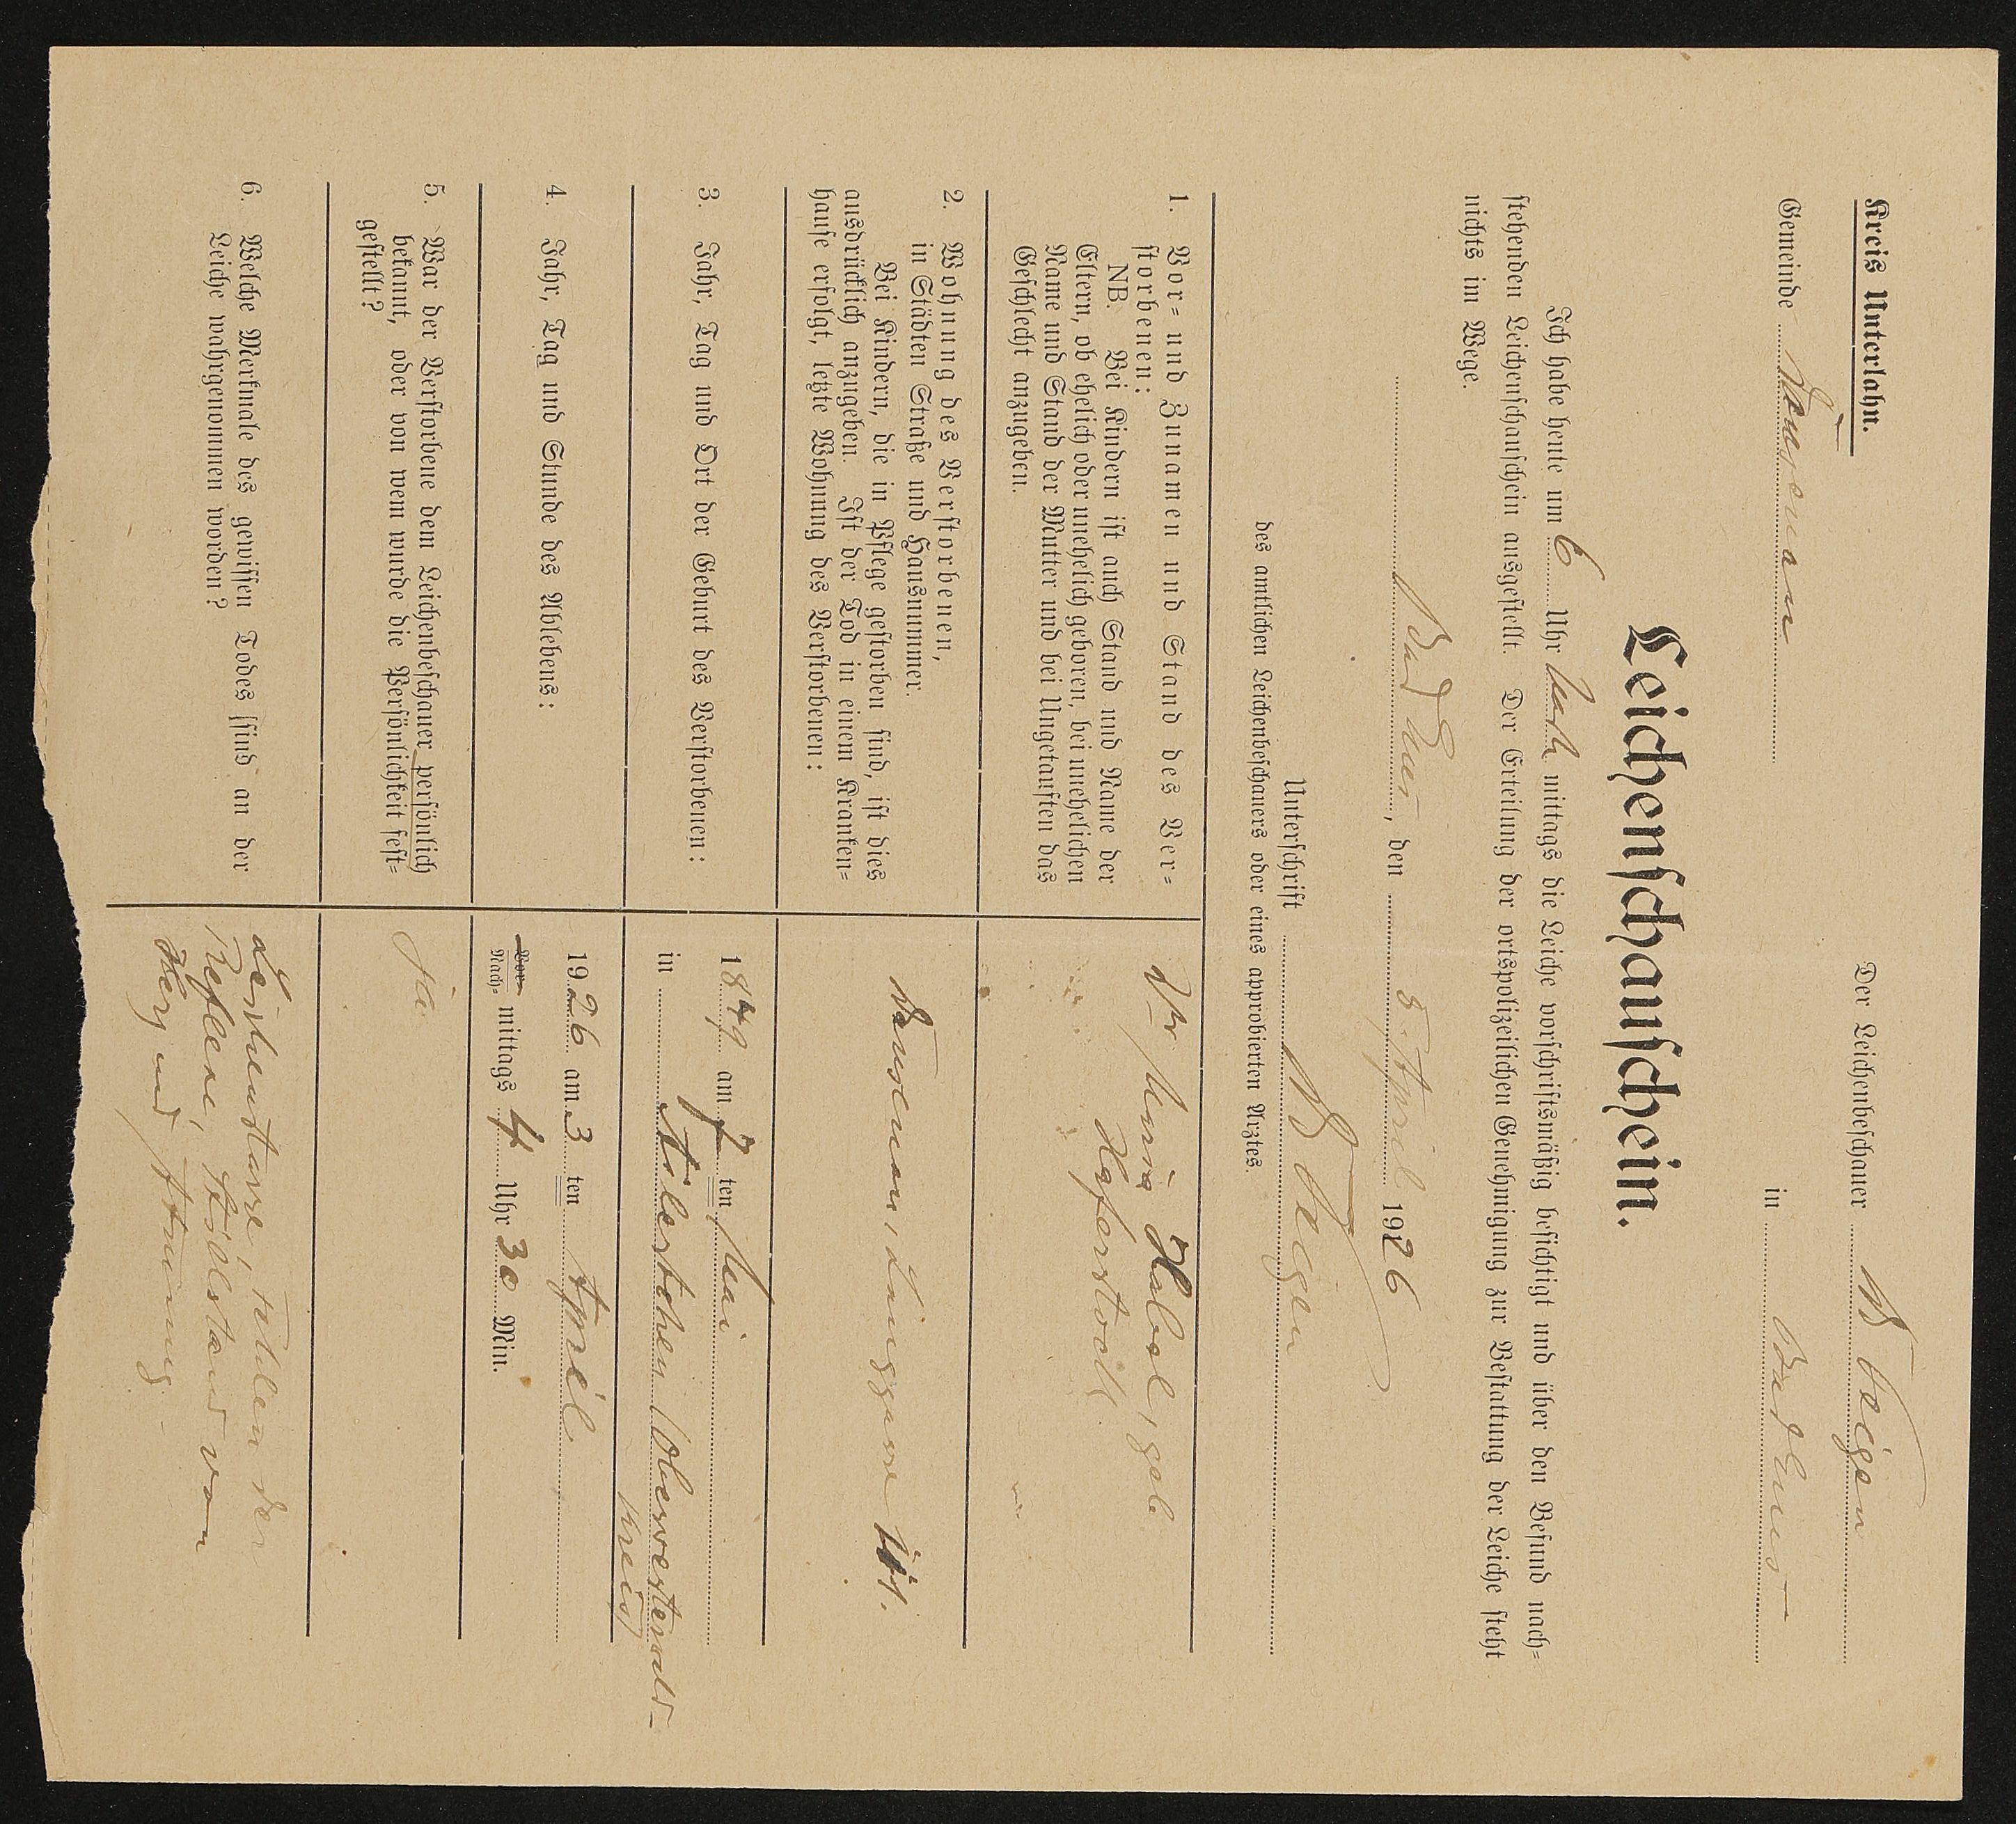 Kreis Unterlahn.
Gemeinde Dausenau
Der Leichenbeschauer W Baeigen
in Bad Ems
Leichenschauschein.
Ich habe heute um 6 Uhr Nach mittags die Leiche vorschriftsmäßig besichtigt und über den Befund nach=
stehenden Leichenschauschein ausgestellt. Der Erteilung der ortspolizeilichen Genehmigung zur Bestattung der Leiche steht
nichts im Wege.
Bad Ems, den 5. April 1926
Unterschrift
des amtlichen Leichenbeschauers oder eines approbierten Arztes.
1. Vor= und Zunamen und Stand des Ver=
storbenen:
NB. Bei Kindern ist auch Stand und Name der
Eltern, ob ehelich oder unehelich geboren, bei unehelichen
Name und Stand der Mutter und bei Ungetauften das
Geschlecht anzugeben.
Maria Habel, geb.
2. Wohnung des Verstorbenen,
in Städten Straße und Hausnummer.
Bei Kindern, die in Pflege gestorben sind, ist dies
ausdrücklich anzugeben. Ist der Tod in einem Kranken=
hause erfolgt, letzte Wohnung des Verstorbenen:
Dausenau, Langgasse
3. Jahr, Tag und Ort der Geburt des Verstorbenen:
1849 am 7 ten Mai
in Ailertchen (Oberwesterwald-
kreis)
4. Jahr, Tag und Stunde des Ablebens:
1926 am 3 ten April
Vor=
Nach= mittags 4 Uhr 30 Min.
5. War der Verstorbene dem Leichenbeschauer persönlich
bekannt, oder von wem wurde die Persönlichkeit fest=
gestellt?
Ja.
6. Welche Merkmale des gewissen Todes sind an der
Leiche wahrgenommen worden?
Leichenstarre, Fehlen der
Reflexe, Stillstand von
Herz und Atmung.